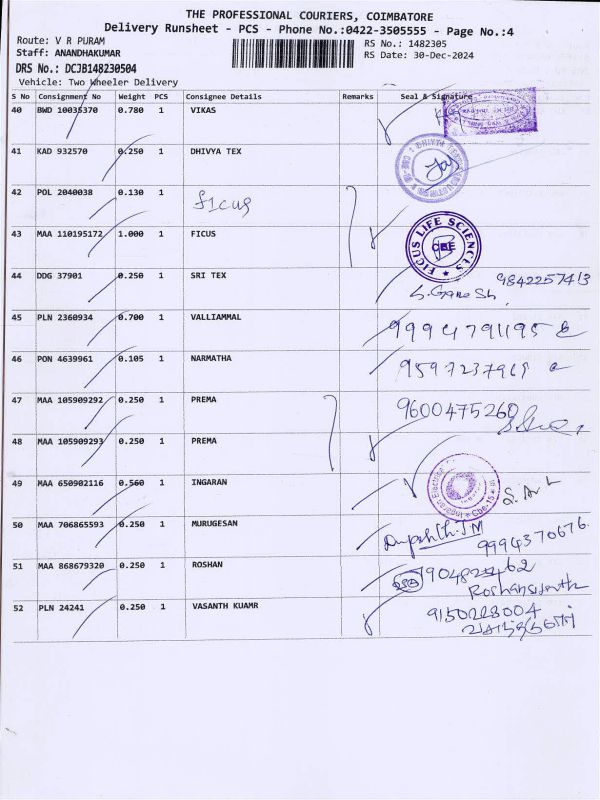 THE PROFESSIONAL COURIERS, COIMBATORE
Delivery Runsheet - PCS - Phone No.:0422-3505555 - Page No.:4
Route: V R PURAM
RS No.: 1482305
Staff: ANANDHAKUMAR
RS Date: 30-Dec-2024
DRS No.: DCJB148230504
Vehicle: Two Wheeler Delivery
S No Consignment No Weight PCS Consignee Details Remarks Seal & Signature
40 BWD 10035370 0.780 1 VIKAS
41 KAD 932570 0.250 1 DHIVYA TEX
42 POL 2040038 0.130 1 ficus
43 MAA 110195172 1.000 1 FICUS FICUS LIFE SCIENCES CBE
44 DDG 37901 0.250 1 SRI TEX 9842257413
S. Ganesh.
45 PLN 2360934 0.700 1 VALLIAMMAL 9994791195
46 PON 4639961 0.105 1 NARMATHA 9597237969
47 MAA 105909292 0.250 1 PREMA 9600475260
48 MAA 105909293 0.250 1 PREMA
49 MAA 650902116 0.560 1 INGARAN
50 MAA 706865593 0.250 1 MURUGESAN 9994370676.
51 MAA 868679320 0.250 1 ROSHAN
52 PLN 24241 0.250 1 VASANTH KUAMR 9150228004